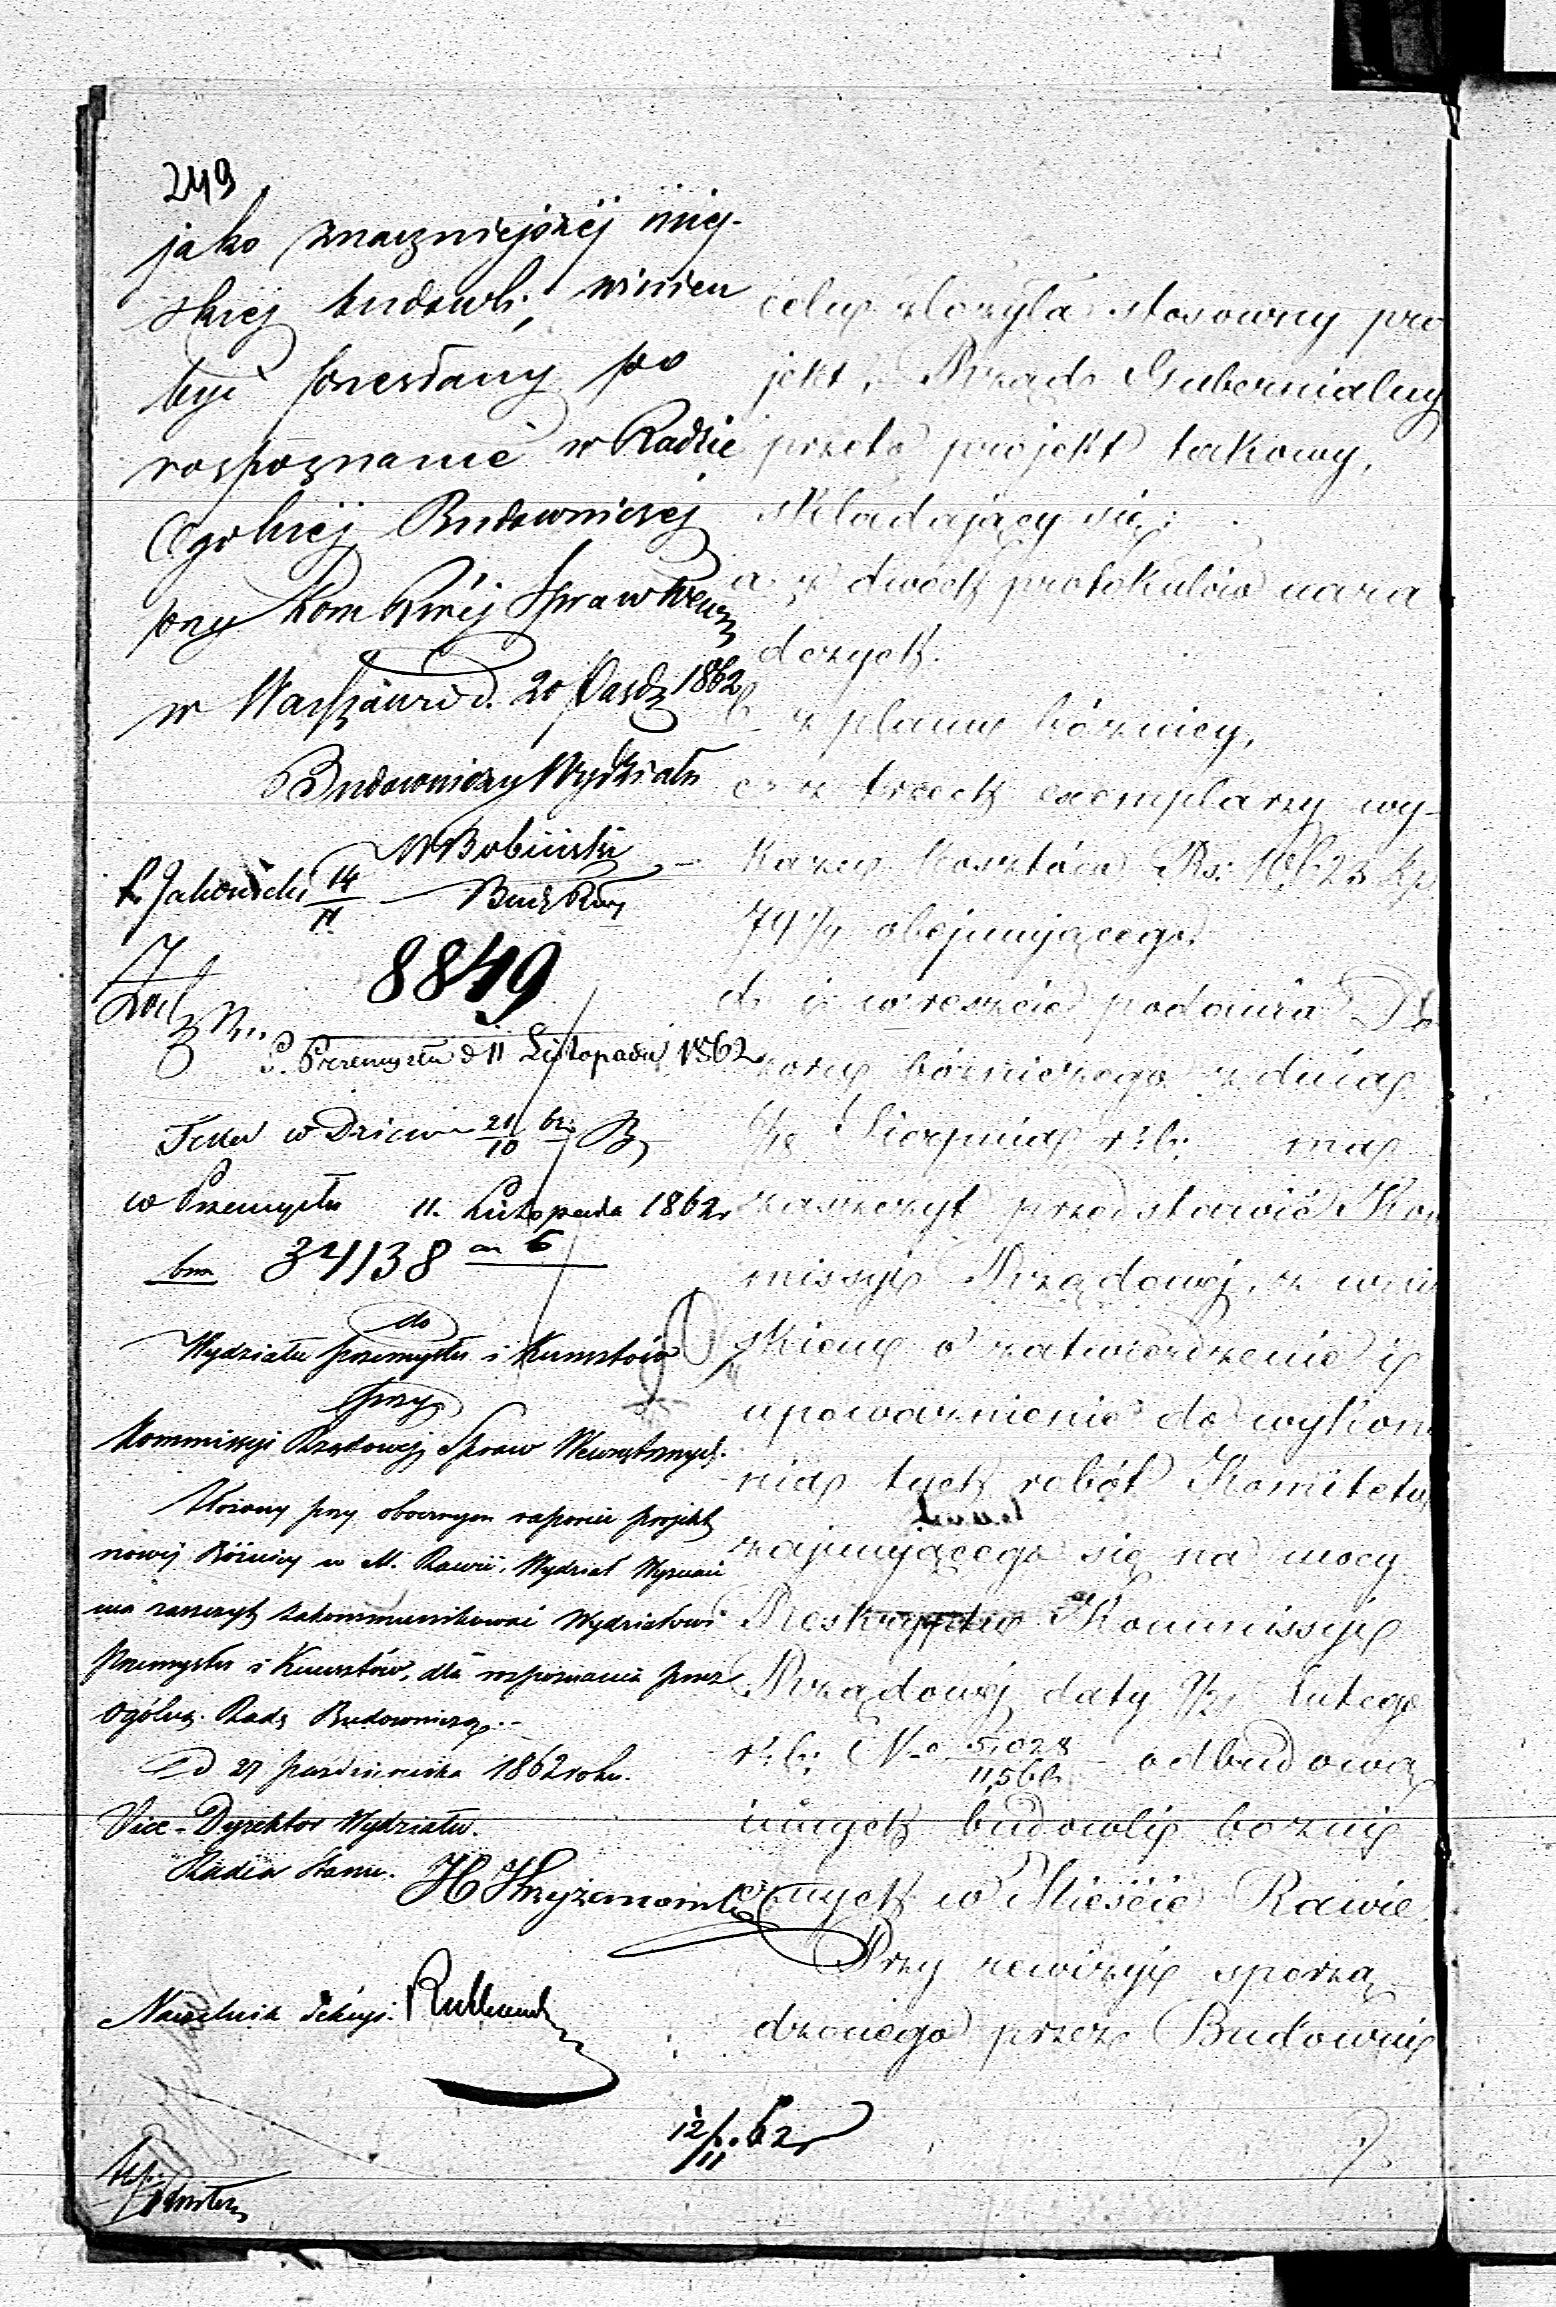 249
jako znaczniejszéj miej-
skiej budowli, winien
być przesłany po
rozpoznanie w Radzie
Ogólnéj Budowniczej
przy Kom Rząj Spraw Wewn
w Warszawie d. 20 Paźdz 1862
Budowniczy Wydziału
8849
P. Przemysłu d 11 Listopada 1862
w Przemysłu 11. Listopada 1862r
34138
do
Wydziału przemysłu i Kunsztów
przy
Kommissyi Rządowej Spraw Wewnętrznych.
Złożony przy obocznym raporcie projekt
nowéj Bóżnicy w M. Rawie, Wydział Wyznań
ma zaszczyt zakommunikować Wydziałowi
Przemysłu i Kunsztów, dla rozpoznania przez
Ogólną Radę Budowniczą.-
d 27 Października 1862 roku.
Vice-Dyrektor Wydziału.
Radca Stanu. H Krzyżanowski
Naczelnik Sekcyi.
12/11 62r
celu złożyła stosowny pro
jekt, Rząd Gubernialny
przeto projekt takowy,
składający się:
a, z dwóch protokułów nara
dczych.
b z planu bóżnicy,
c, z trzech exemplarzy wy-
kazu kosztów Rs: 10,623 kp
79 1/4 obejmującego.
d, i wreszcie podania Do
zoru bóżniczego z dnia
6/18 Sierpnia r. b. ma
zaszczyt przedstawić Kom
missyi Rządowej, z wnio
skiem o zatwierdzenie i
upoważnienie do wykona
nia tych robót Komitetu
zajmującego się na mocy
Reskryptu Kommissyi
Rządowej daty 9/21 Lutego
r. b. No 5,028/11,566 odbudową
innych budowli bożni
cznych w Mieście Rawie.
Przy rewizyi sporzą
dzonego przez Budowni